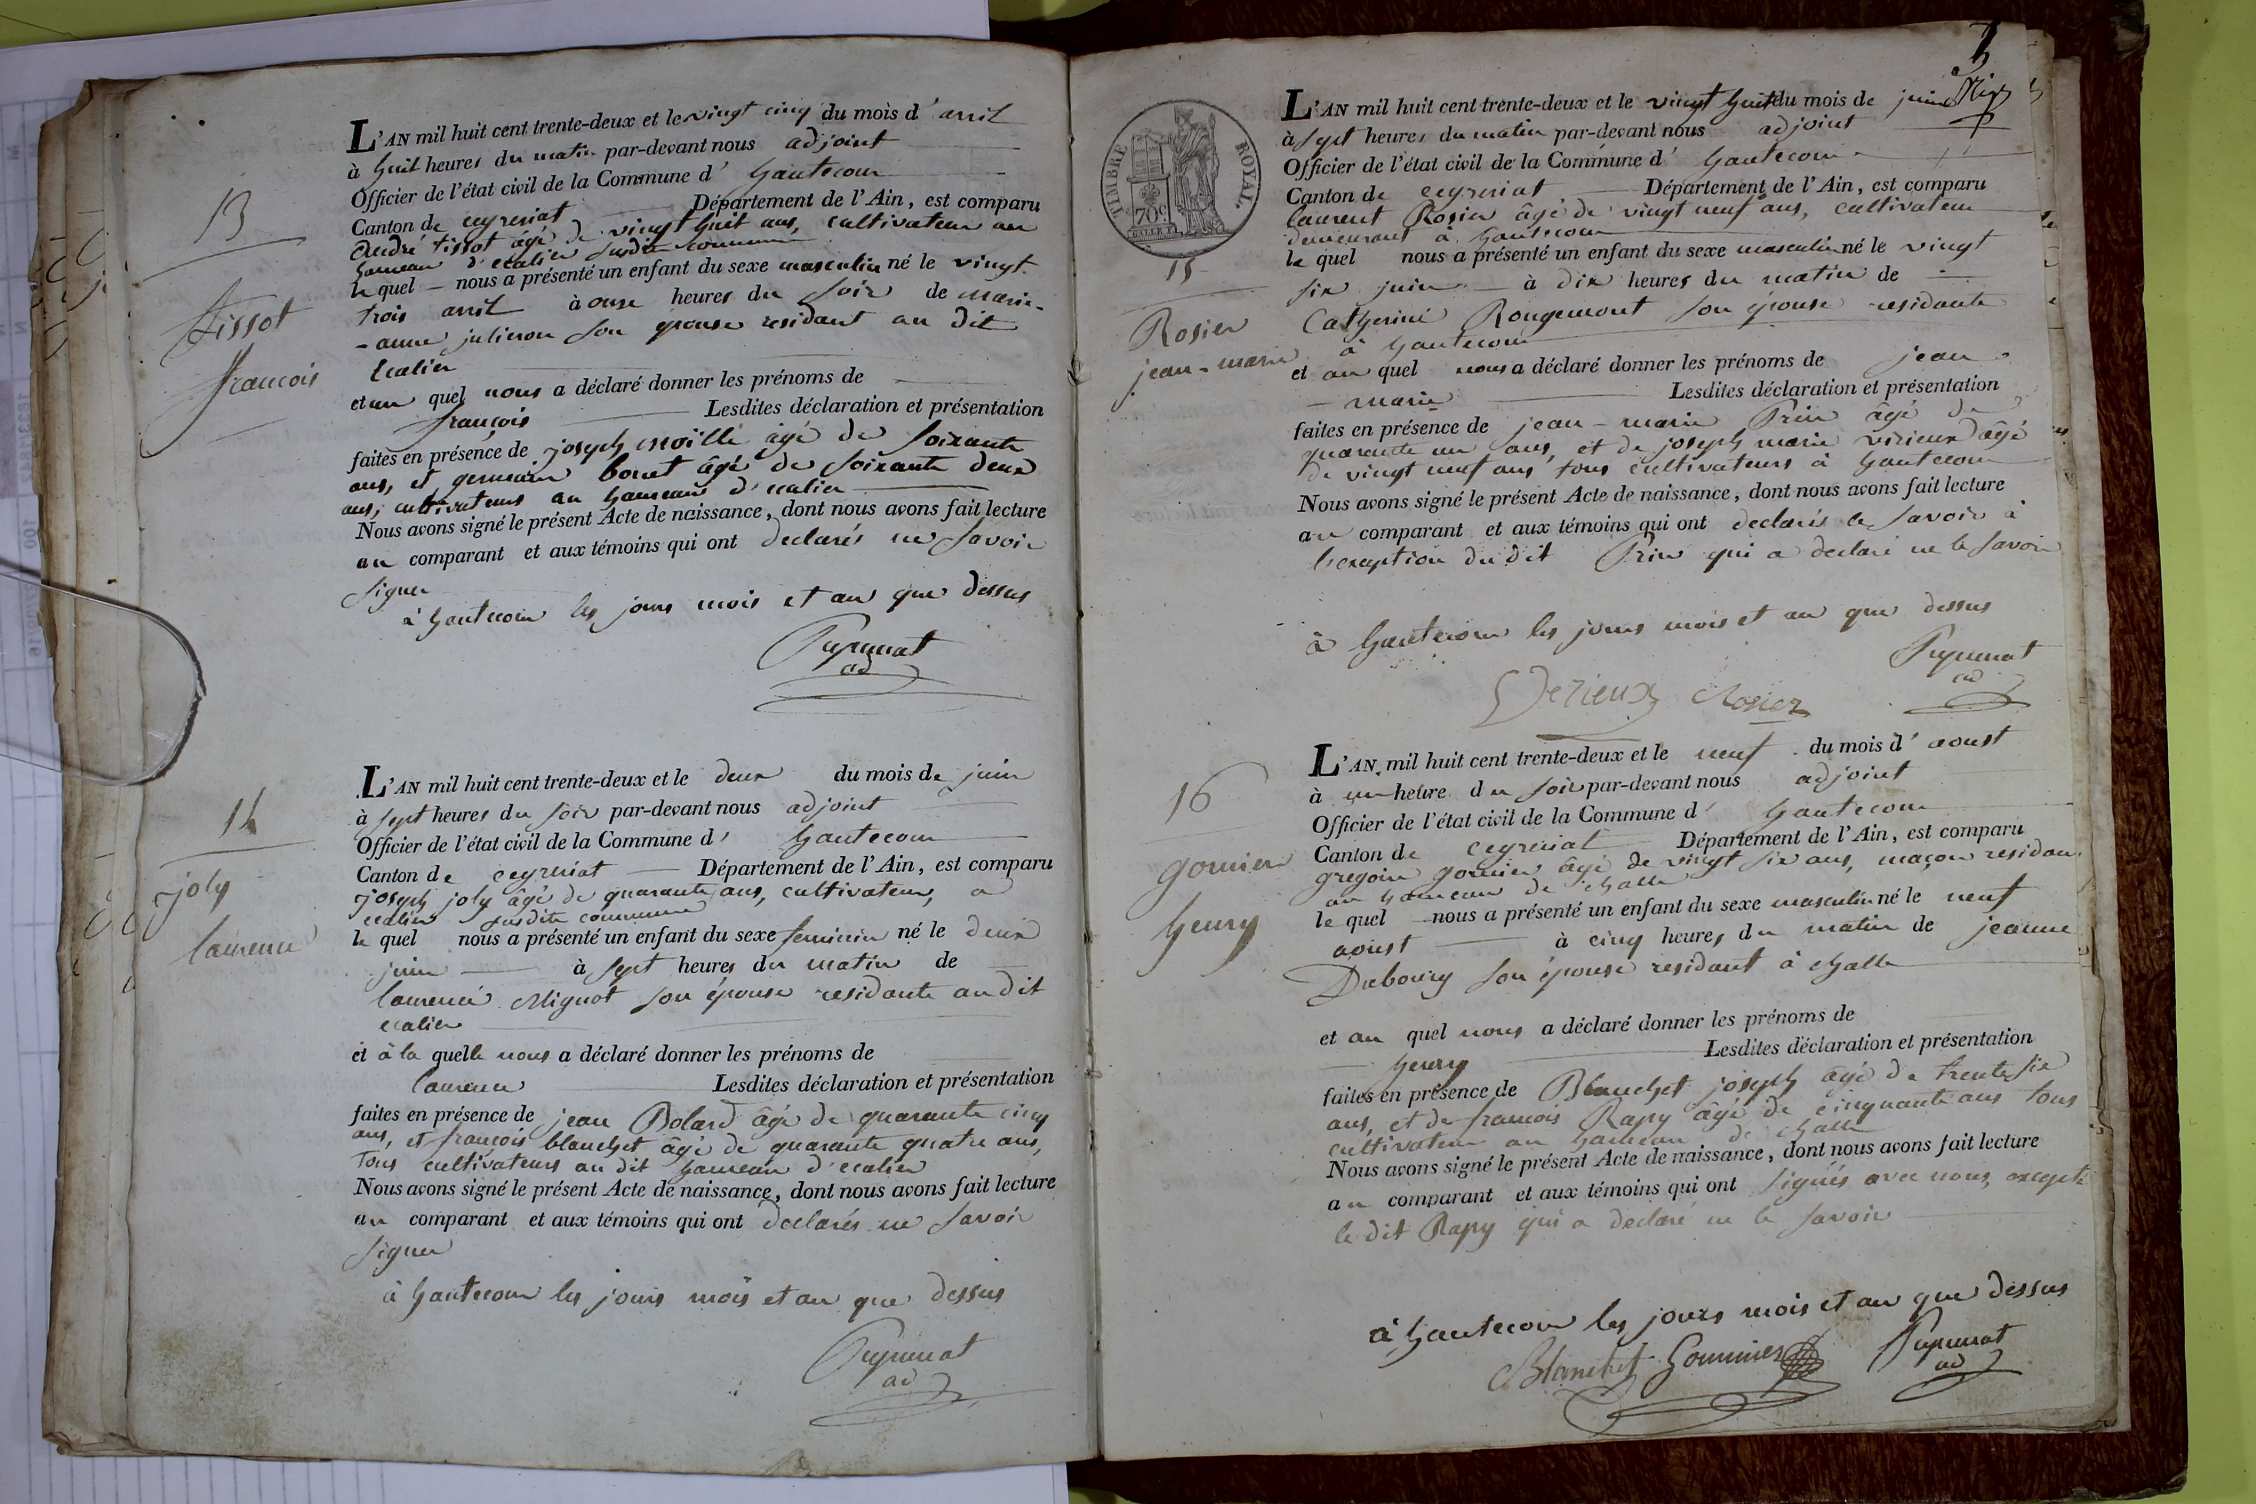 13
Tissot
francois
L'AN mil huit cent trente-deux et le vingt cinq du mois d' avril
à huit heures du matin par-devant nous adjoint
Officier de l'état civil de la Commune d' hautecour
Canton de ceyzeriat Département de l'Ain, est comparu
andré tissot âgé de vingt huit ans, cultivateur au
hameau d'ecalier susdite commune
le quel nous a présenté un enfant du sexe masculin né le vingt
trois avril à onze heures du soir de marie-
-anne julieron son epouse residant au dit
Ecalier
et au quel nous a déclaré donner les prénoms de
françois Lesdites déclaration et présentation
faites en présence de joseph moille âgé de soixante
ans, et germain boret âgé de soixante deux
ans, cultivateurs au hameau d'ecalier
Nous avons signé le présent Acte de naissance, dont nous avons fait lecture
au comparant et aux témoins qui ont declarés ne savoir
signer
à hautecour les jours mois et an que dessus
ad
14
joly
laurence
L'AN mil huit cent trente-deux et le deux du mois de juin
à sept heures du soir par-devant nous adjoint
Officier de l'état civil de la Commune d' hautecour
Canton de ceyzeriat Département de l'Ain, est comparu
joseph joly âgé de quarante ans, cultivateur, a
ecalier susdite commune
le quel nous a présenté un enfant du sexe feminin né le deux
juin à sept heures du matin de
laurence Mignot son épouse residante au dit
ecalier
et à la quelle nous a déclaré donner les prénoms de
laurence Lesdites déclaration et présentation
faites en présence de jean Bolard âgé de quarante cinq
ans, et françois blanchet âgé de quarante quatre ans,
Tous cultivateurs au dit hameau d'ecalier
Nous avons signé le présent Acte de naissance, dont nous avons fait lecture
au comparant et aux témoins qui ont declarés ne savoir
signer
à hautecour les jours mois et an que dessus
ad
7
TIMBRE ROYAL
70c
15
Rosier
jean-marie
L'AN mil huit cent trente-deux et le vingt huit du mois de juin
à sept heures du matin par-devant nous adjoint
Officier de l'état civil de la Commune d' hautecour
Canton de ceyzeriat Département de l'Ain, est comparu
laurent Rosier âgé de vingt neuf ans, cultivateur
demeurant à hautecour
le quel nous a présenté un enfant du sexe masculin né le vingt
six juin à dix heures du matin de
Catherine Rougemont son épouse residante
à hautecour
et au quel nous a déclaré donner les prénoms de jean
- marie Lesdites déclaration et présentation
faites en présence de jean-marie Prin âgé de
quarante un ans, et de joseph marie virieux âgé
de vingt neuf ans tous cultivateurs à hautecour
Nous avons signé le présent Acte de naissance, dont nous avons fait lecture
au comparant et aux témoins qui ont declarés le savoir à
l'exception du dit Prin qui a declaré ne le savoir
à hautecour les jours mois et an que dessus
ad
Verieux Rosier
16
gounier
henry
L'AN mil huit cent trente-deux et le neuf du mois d' aoust
à une heure du soir par-devant nous adjoint
Officier de l'état civil de la Commune d' hautecour
Canton de ceyzeriat Département de l'Ain, est comparu
gregoire gounier âgé de vingt six ans, maçon residan
au hameau de challe
le quel nous a présenté un enfant du sexe masculin né le neuf
aoust à cinq heures du matin de jeanne
Dubourg son épouse residant à challe
et au quel nous a déclaré donner les prénoms de
henry Lesdites déclaration et présentation
faites en présence de Blanchet joseph âgé de trente six
ans, et de francois Rapy âgé de cinquante ans tous
cultivateur au hameau de challe
Nous avons signé le présent Acte de naissance, dont nous avons fait lecture
au comparant et aux témoins qui ont signés avec nous, excepté
le dit Rapy qui a declaré ne le savoir
à hautecour les jours mois et an que dessus
Blanchet Gounnier
ad